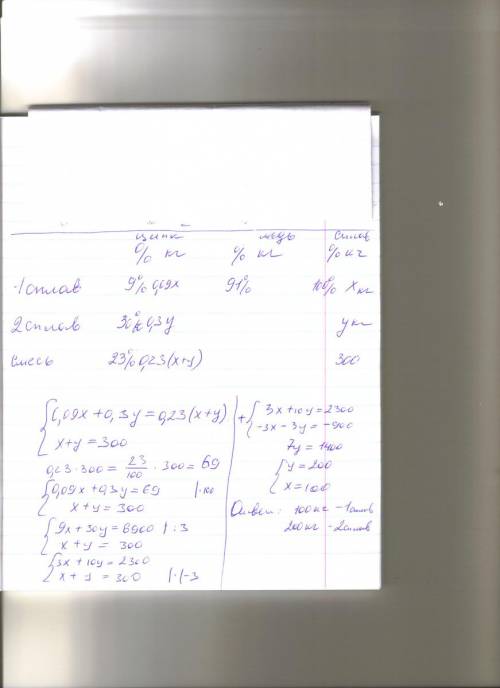 цинк медь сплав
% кг % кг % кг
1 сплав 9% 0,09x 91% 100% x кг
2 сплав 30% 0,3y y кг
смесь 23% 0,23(x+y) 300
0,09x+0,3y=0,23(x+y)
x+y=300
0,23·300=23/100·300=69
0,09x+0,3y=69 |·100
x+y=300
9x+30y=6900 |:3
x+y=300
3x+10y=2300
x+y=300 |·(-3
+ 3x+10y=2300
-3x-3y=-900
7y=1400
y=200
x=100
Ответ: 100кг-1сплав
200кг-2сплав